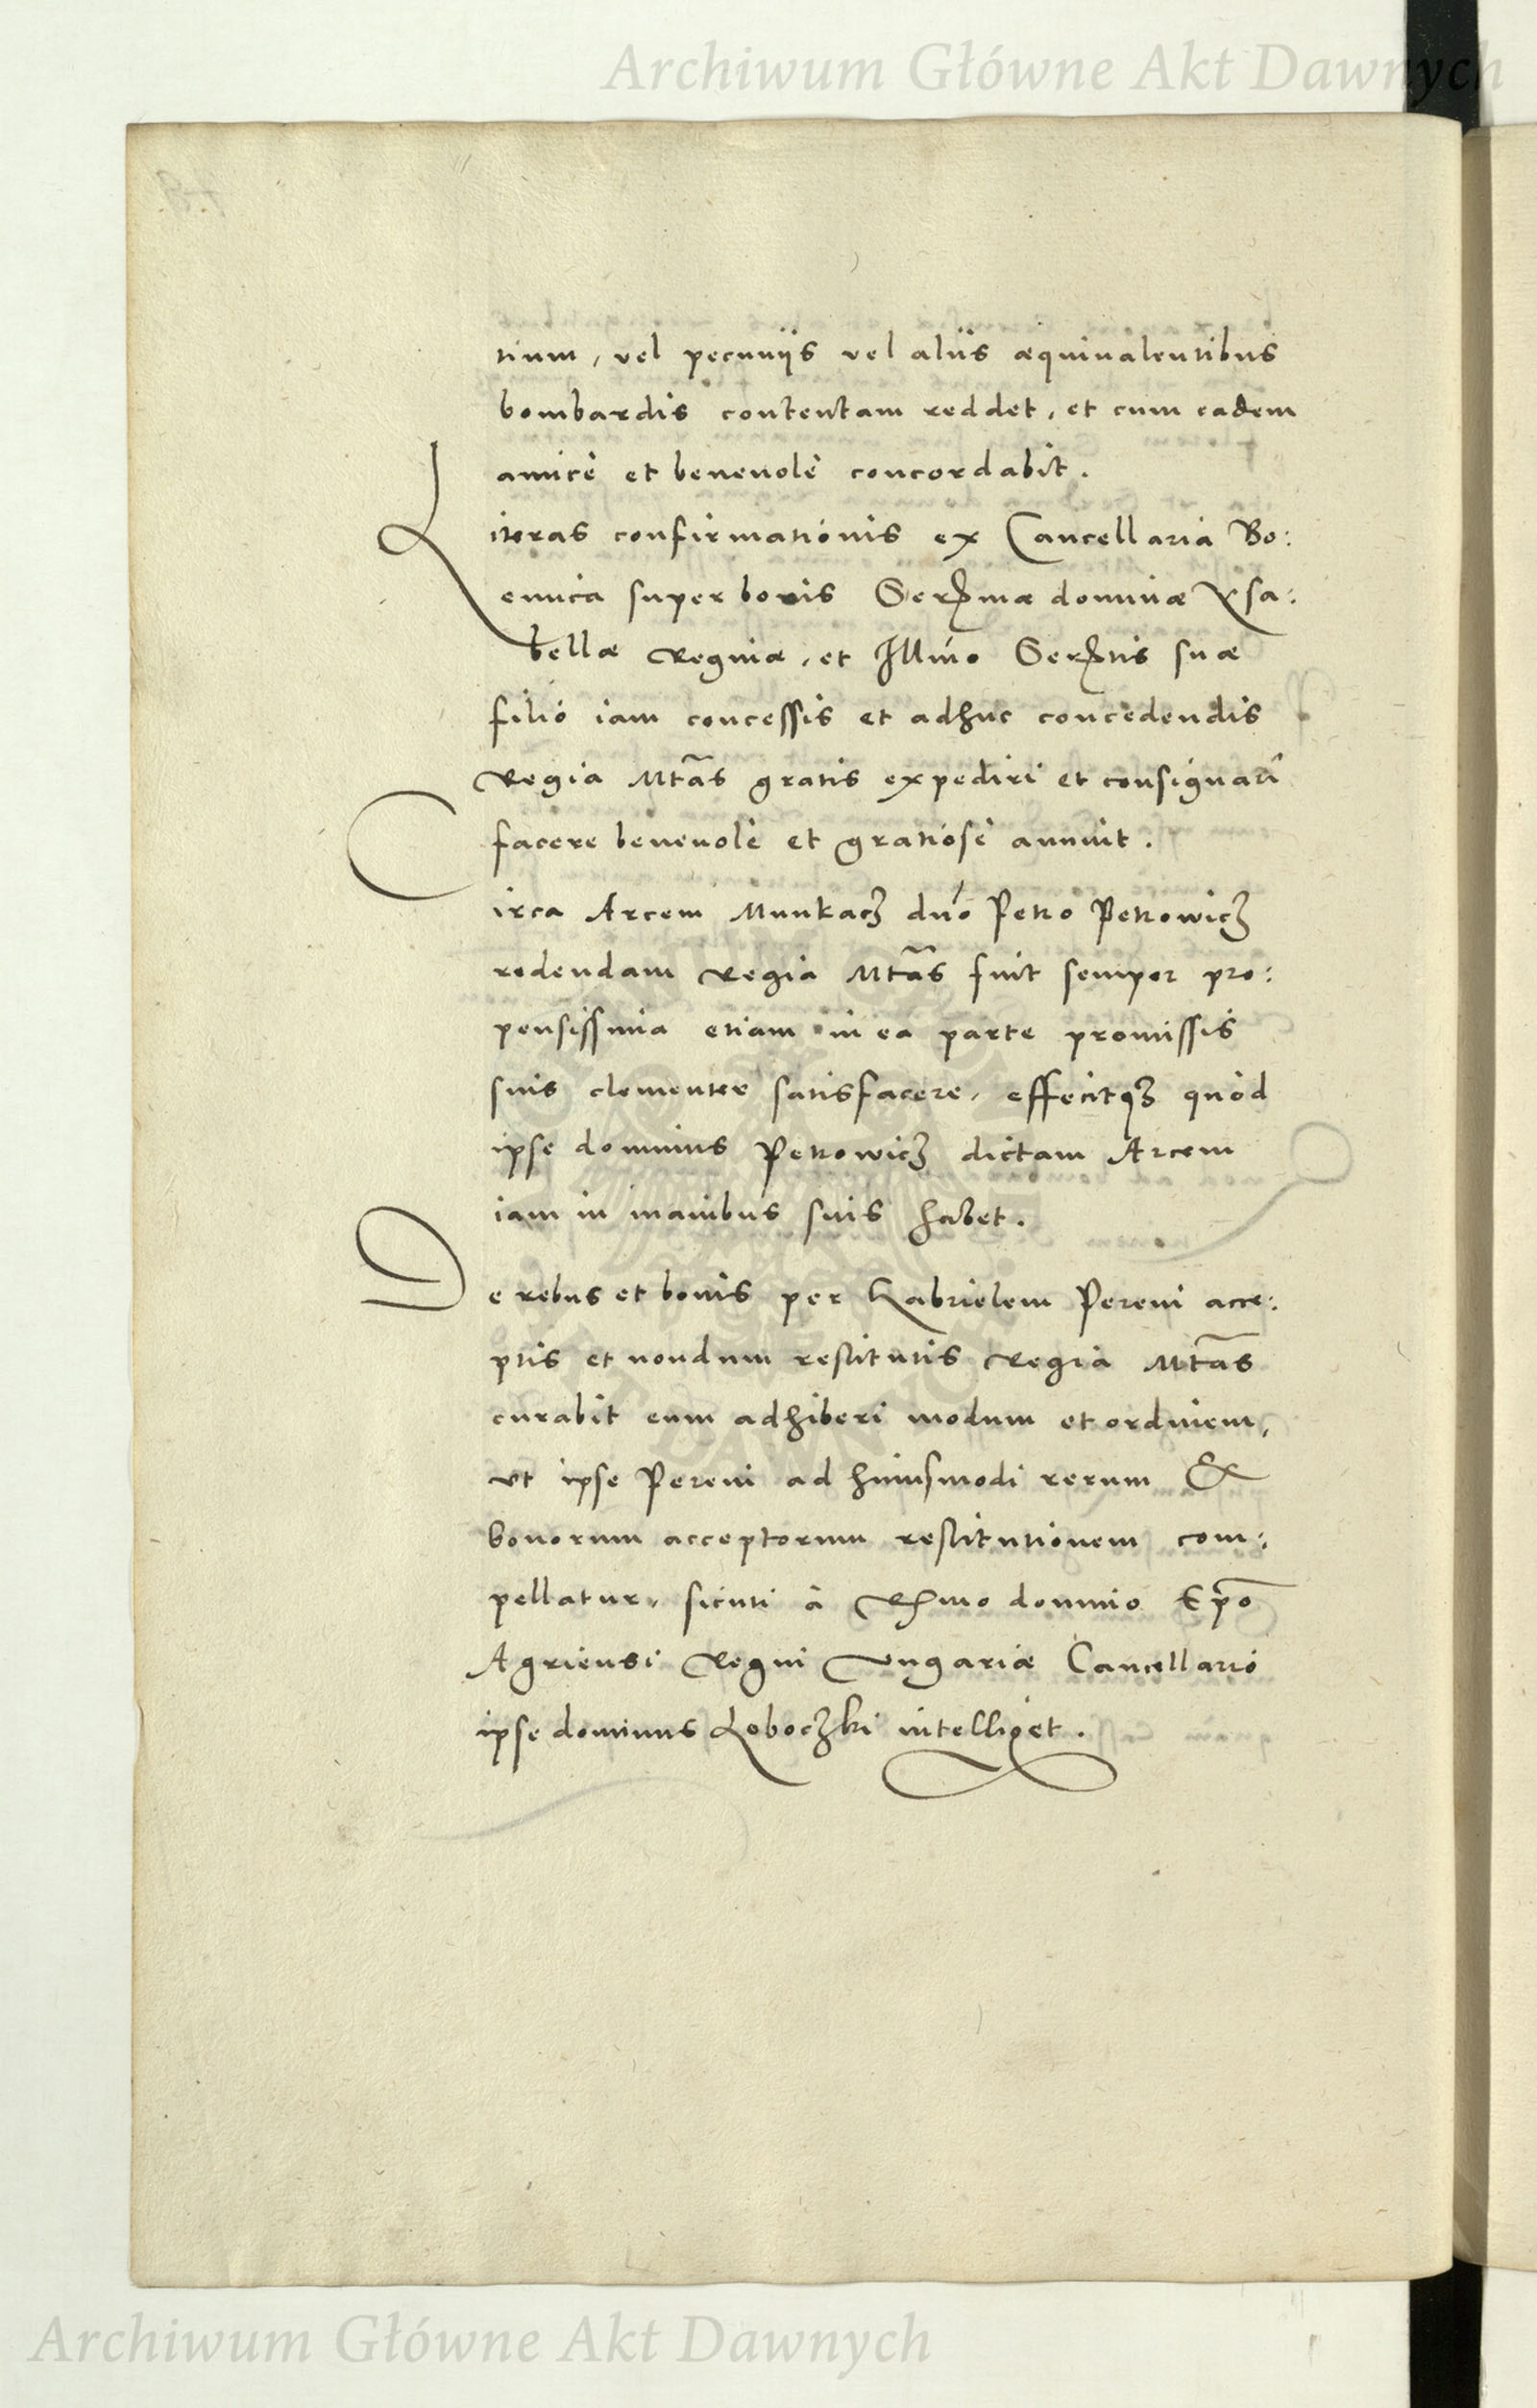 Archiwum Główne Akt Dawnych
tium, vel pecunijs vel alijs æquiualentibus
bombardis contentam reddet, et cum eadem
amicè et beneuolè concordabit.
Literas confirmationis ex Cancellaria Bo:
emica super bonis Sermæ dominæ Ysa:
bellæ Reginæ, et Illmo Sertis suæ
filio iam concessis et adhuc concedendis
Regia Mtas gratis expediri et consignari
facere beneuolè et gratiosè annuit.
Circa Arcem Munkacz dno Petro Petrowicz
redendam Regia Mtas fuit semper pro:
pensissima etiam in ea parte promissis
suis clementer satisfacere, effecitqz quòd
ipse dominus Petrowicz dictam Arcem
iam in manibus suis habet.
De rebus et bonis per Gabrielem Pereni acce:
ptis et nondum restitutis Regia Mtas
curabit eum adhiberi modum et ordinem,
vt ipse Pereni ad huiusmodi rerum &
bonorum acceptorum restitutionem com:
pellatur, sicuti à Rmo domino Epo
Agriensi Regni Vngariæ Cancellario
ipse dominus Loboczki intelliget.
Archiwum Główne Akt Dawnych